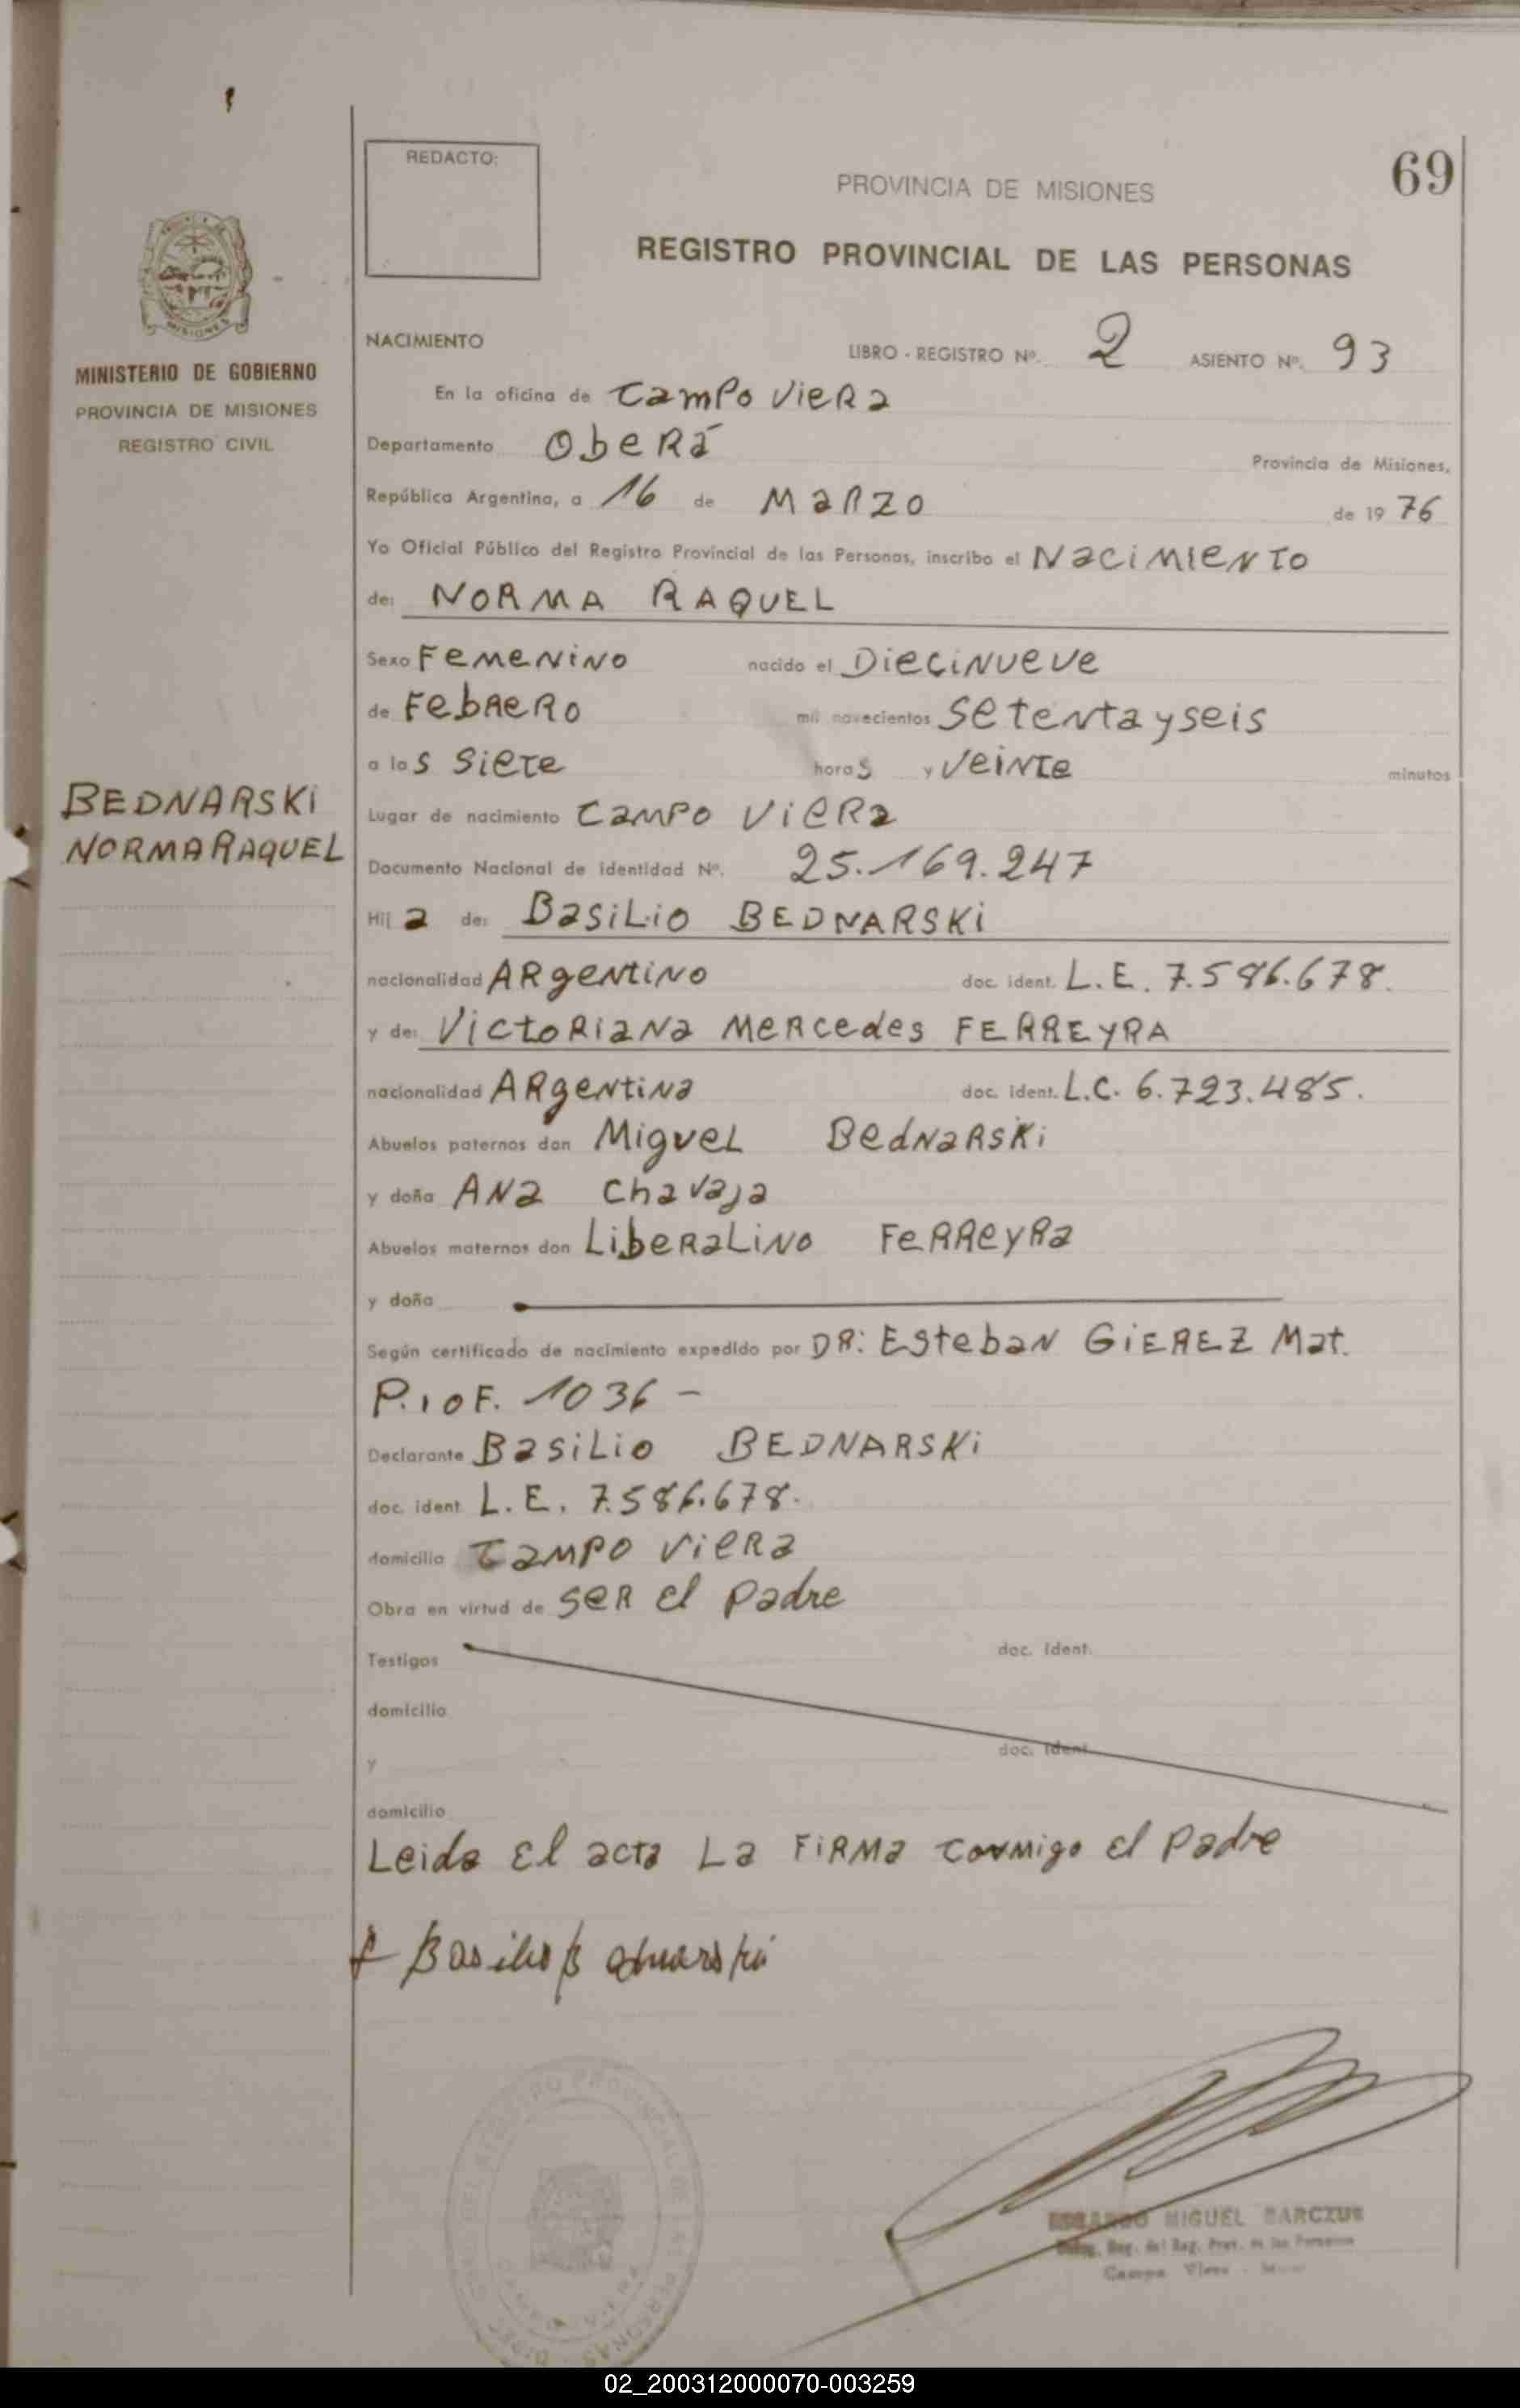 REDACTO:
69
PROVINCIA DE MISIONES
REGISTRO PROVINCIAL DE LAS PERSONAS
MISIONES
MINISTERIO DE GOBIERNO
PROVINCIA DE MISIONES
REGISTRO CIVIL
NACIMIENTO
LIBRO - REGISTRO Nº. 2 ASIENTO Nº. 93
En la oficina de Campo Viera
Departamento Oberá Provincia de Misiones,
República Argentina, a 16 de Marzo de 19 76
Yo Oficial Público del Registro Provincial de las Personas, inscribo el Nacimiento
de: NORMA RAQUEL
Sexo Femenino nacido el Diecinueve
de Febrero mil novecientos Setenta y seis
a las Siete horas y Veinte minutos
BEDNARSKI
NORMA RAQUEL
Lugar de nacimiento Campo Viera
Documento Nacional de identidad Nº. 25.169.247
Hij a de: Basilio BEDNARSKI
nacionalidad Argentino doc. ident. L.E. 7.586.678.
y de: Victoriana Mercedes FERREYRA
nacionalidad Argentina doc. ident. L.C. 6.723.485.
Abuelos paternos don Miguel Bednarski
y doña Ana Chavaja
Abuelos maternos don Liberalino Ferreyra
y doña
Según certificado de nacimiento expedido por DR: Esteban GIEREZ Mat.
Prof. 1036 -
Declarante Basilio BEDNARSKI
doc. ident L.E. 7.586.678.
domicilio Campo Viera
Obra en virtud de ser el padre
Testigos doc. ident.
domicilio
y doc. ident.
domicilio
Leida el acta La Firma conmigo el padre
Basilio Bednarski
MIGUEL BARCZUK
Reg. del Reg. Prov. de las Personas
Campo Viera
02_200312000070-003259